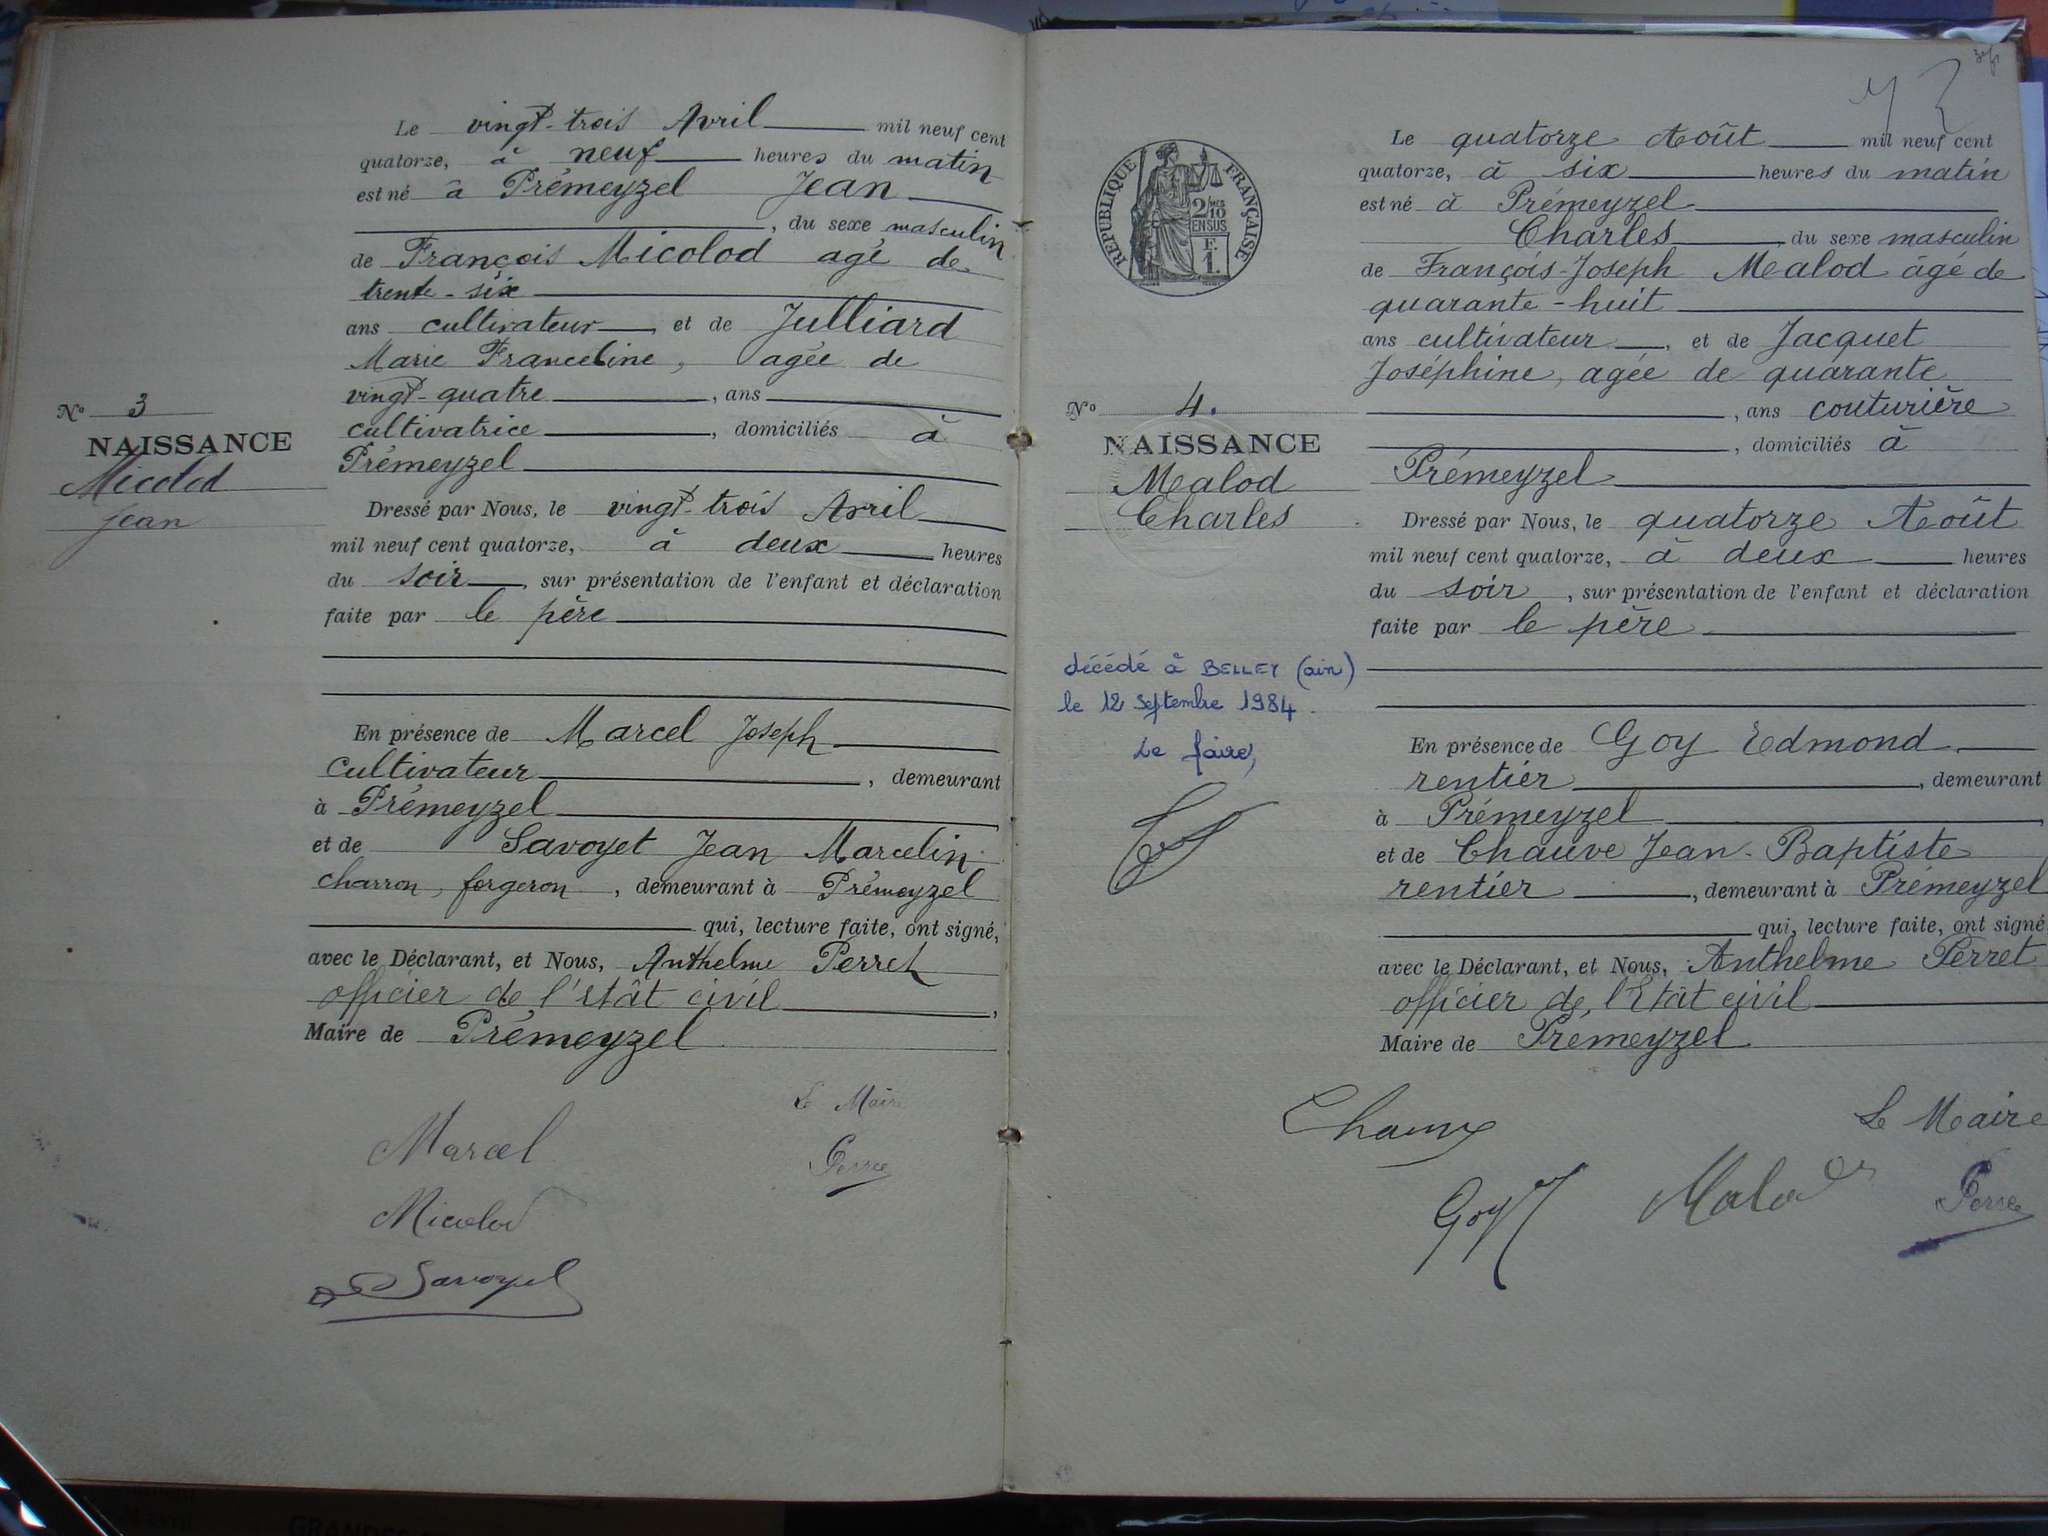 Le vingt-trois Avril mil neuf cent
quatorze, à neuf heures du matin
est né à Prémeyzel Jean
, du sexe masculin
de François Micolod agé de
trente-six
ans cultivateur, et de Julliard
Marie Franceline, agée de
vingt-quatre, ans
cultivatrice, domiciliés à
Prémeyzel
N° 3
NAISSANCE
Micolod
Jean
Dressé par Nous, le vingt-trois Avril
mil neuf cent quatorze, à deux heures
du soir, sur présentation de l'enfant et déclaration
faite par le père
En présence de Marcel Joseph
cultivateur, demeurant
à Prémeyzel,
et de Savoyet Jean Marcelin
charron, forgeron, demeurant à Prémeyzel
qui, lecture faite, ont signé,
avec le Déclarant, et Nous, Anthelme Perret
officier de l'état civil,
Maire de Prémeyzel
Le Maire
Marcel
Perret
Micolod
Savoyet
Le quatorze Août mil neuf cent
quatorze, à six heures du matin
est né à Prémeyzel
Charles, du sexe masculin
de François-Joseph Mealod âgé de
quarante-huit
ans cultivateur, et de Jacquet
Joséphine, agée de quarante
, ans couturière
, domiciliés à
Prémeyzel
RÉPUBLIQUE FRANÇAISE
2/10
EN SUS
F.
1.
N° 4.
NAISSANCE
Mealod
Charles
Dressé par Nous, le quatorze Août
mil neuf cent quatorze, à deux heures
du soir, sur présentation de l'enfant et déclaration
faite par le père
décédé à BELLEY (ain)
le 12 septembre 1984.
Le Maire,
En présence de Goy Edmond
rentier, demeurant
à Prémeyzel,
et de Chauve Jean-Baptiste
rentier, demeurant à Prémeyzel
qui, lecture faite, ont signé
avec le Déclarant, et Nous, Anthelme Perret
officier de l'Etât civil
Maire de Premeyzel
Le Maire
Chauve
Goy
Malod
Perret